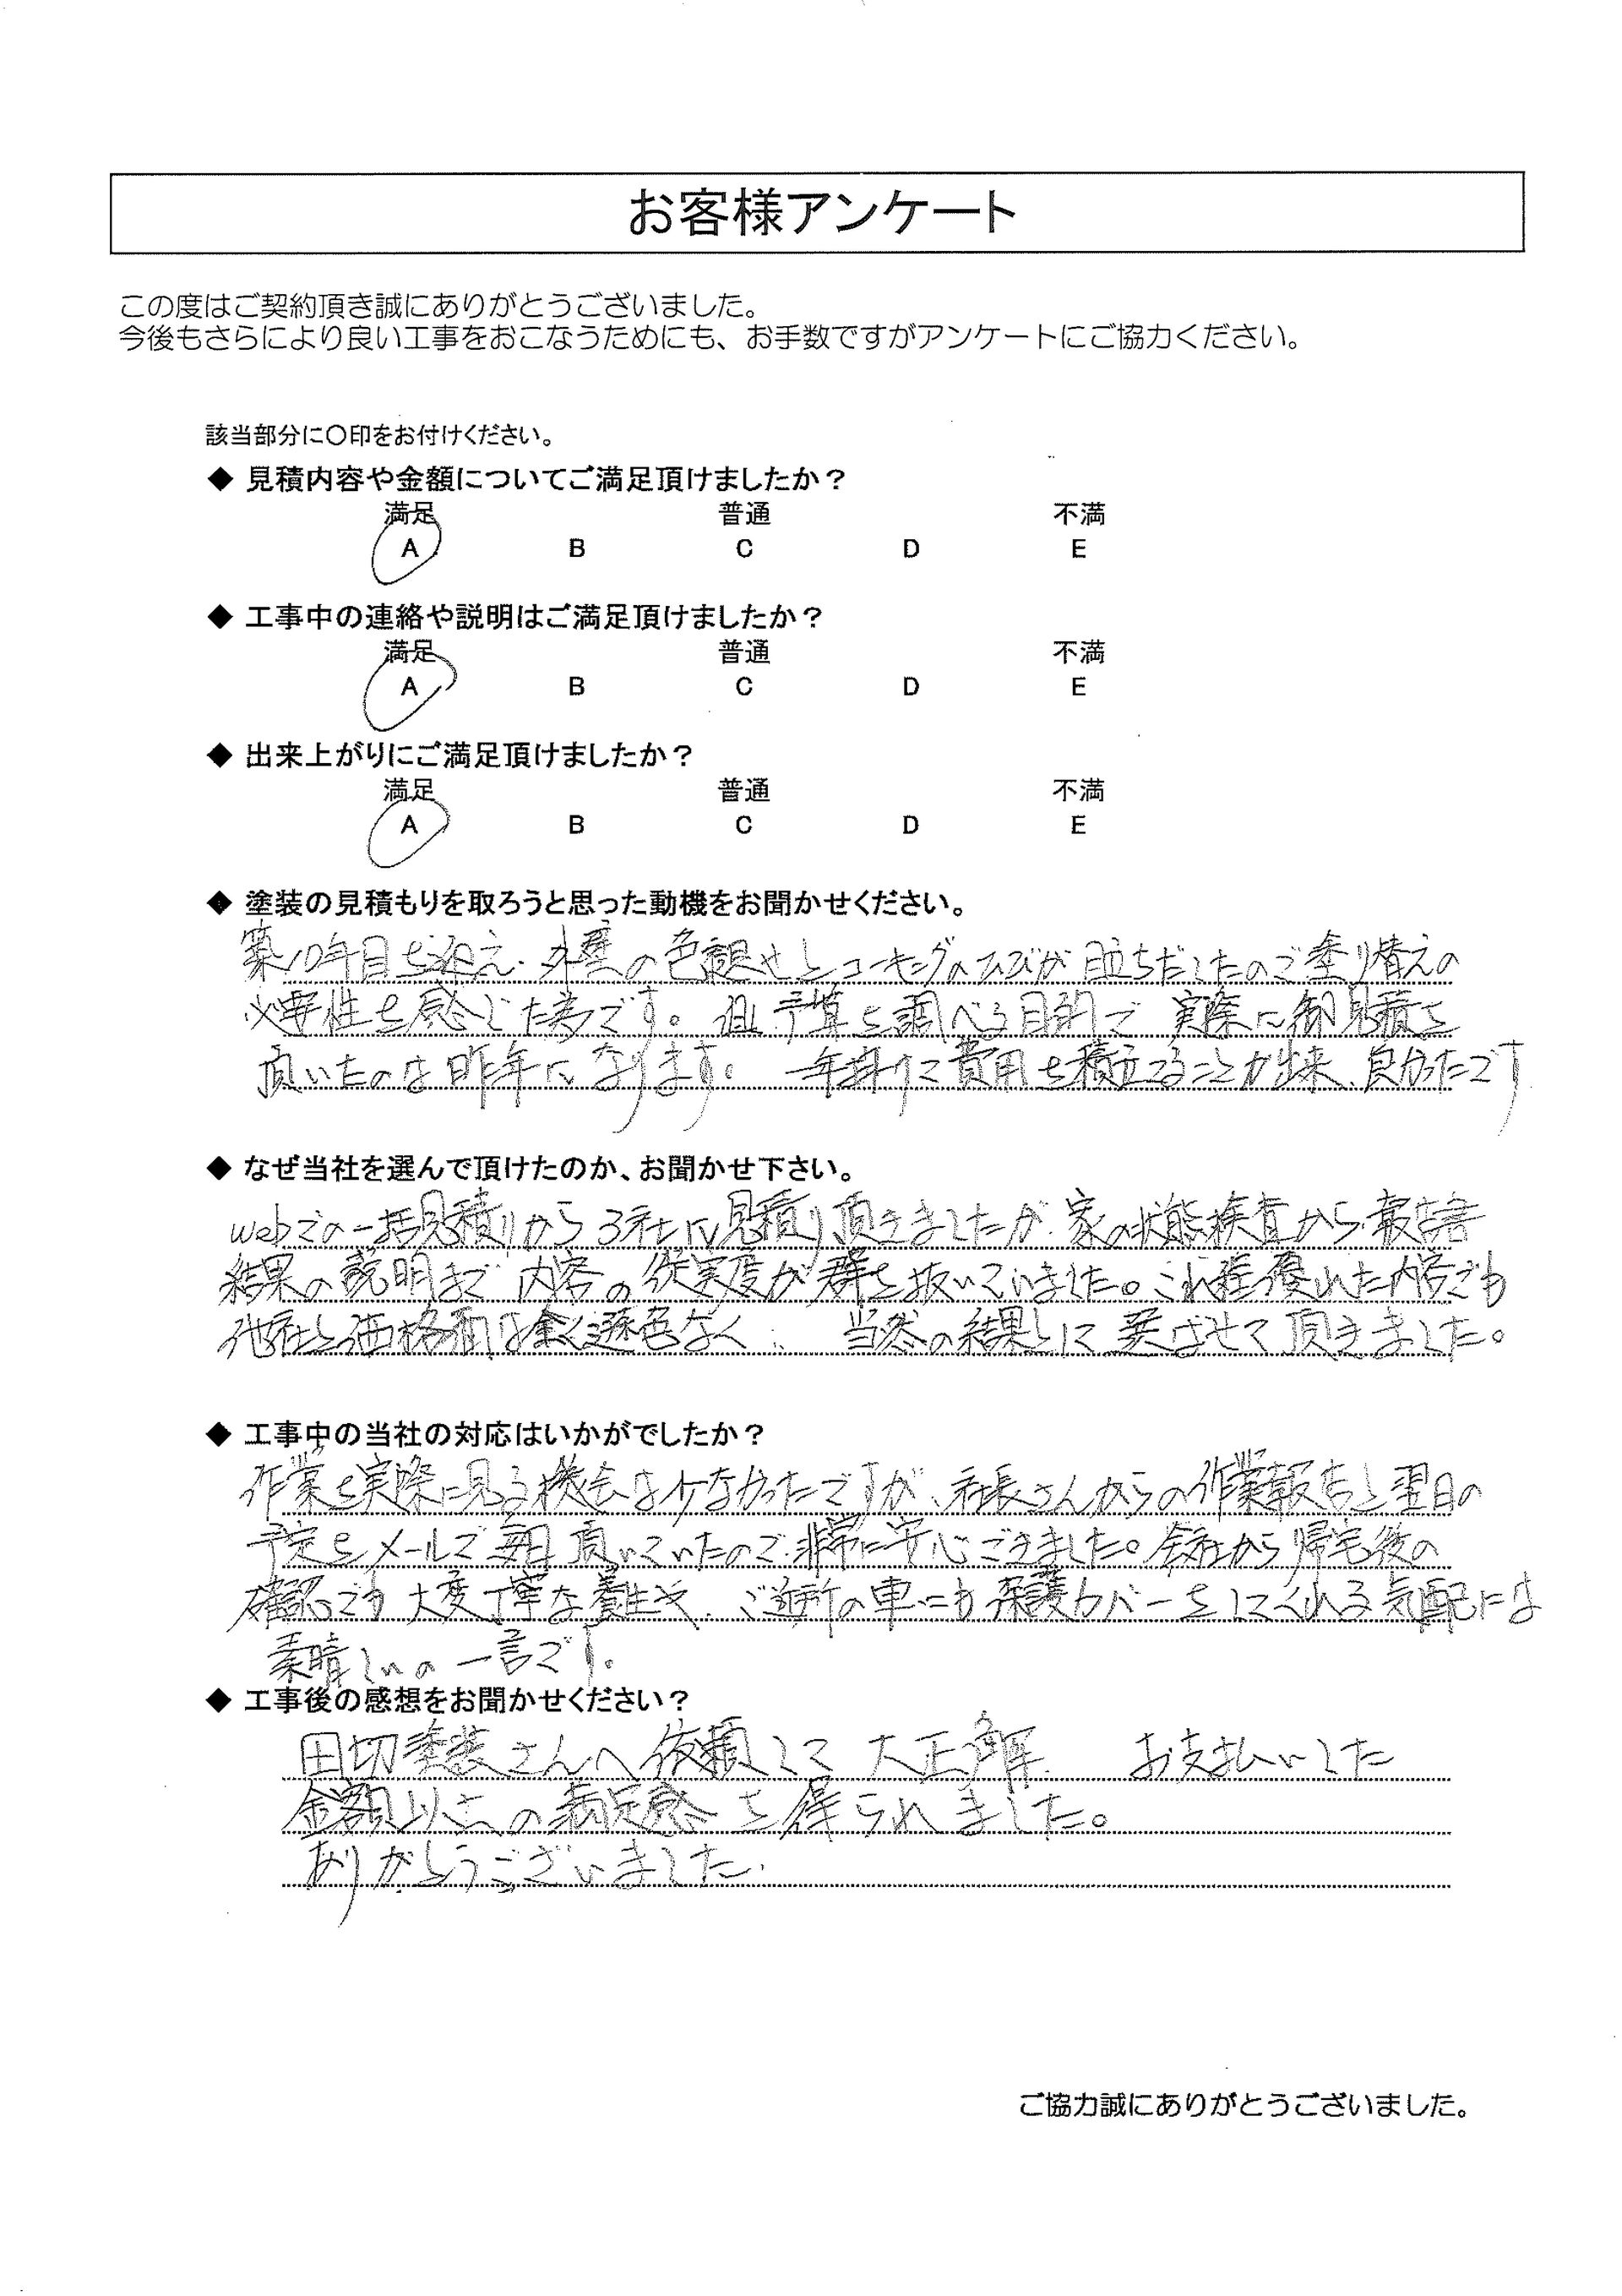 お客様アンケート
この度はご契約頂き誠にありがとうございました。
今後もさらにより良い工事をおこなうためにも、お手数ですがアンケートにご協力ください。
該当部分に〇印をお付けください。
◆ 見積内容や金額についてご満足頂けましたか？
満足 普通 不満
A B C D E
◆ 工事中の連絡や説明はご満足頂けましたか？
満足 普通 不満
A B C D E
◆ 出来上がりにご満足頂けましたか？
満足 普通 不満
A B C D E
◆ 塗装の見積もりを取ろうと思った動機をお聞かせください。
築10年目を迎え、外壁の色褪せとコーキングのヒビが目立ちだしたので塗り替えの
必要性を感じた為です。但し予算を調べる目的で実際に御見積を
頂いたのは昨年になります。一年掛けて費用を積立てることが出来、良かったです
◆ なぜ当社を選んで頂けたのか、お聞かせ下さい。
webでの一括見積りから3社に見積り頂きましたが、家の状態検査から報告書
結果の説明まで内容の従実度が群を抜いていました。これ程優れた内容でも
他社と価格面は全く遜色なく、当然の結果として契させて頂きました。
◆ 工事中の当社の対応はいかがでしたか？
作業を実際に見る機会は少なかったですが、社長さんからの作業報告と翌日の
予定をメールで毎日頂いていたので、非常に安心できました。会社から帰宅後の
確認でも大変丁寧な養生や、ご近所の車にも保護カバーをしてくれる気配には
素晴しいの一言です。
◆ 工事後の感想をお聞かせください？
田切塗装さんへ依頼して大正解、お支払いした
金額以上の満足感を得られました。
ありがとうございました。
ご協力誠にありがとうございました。